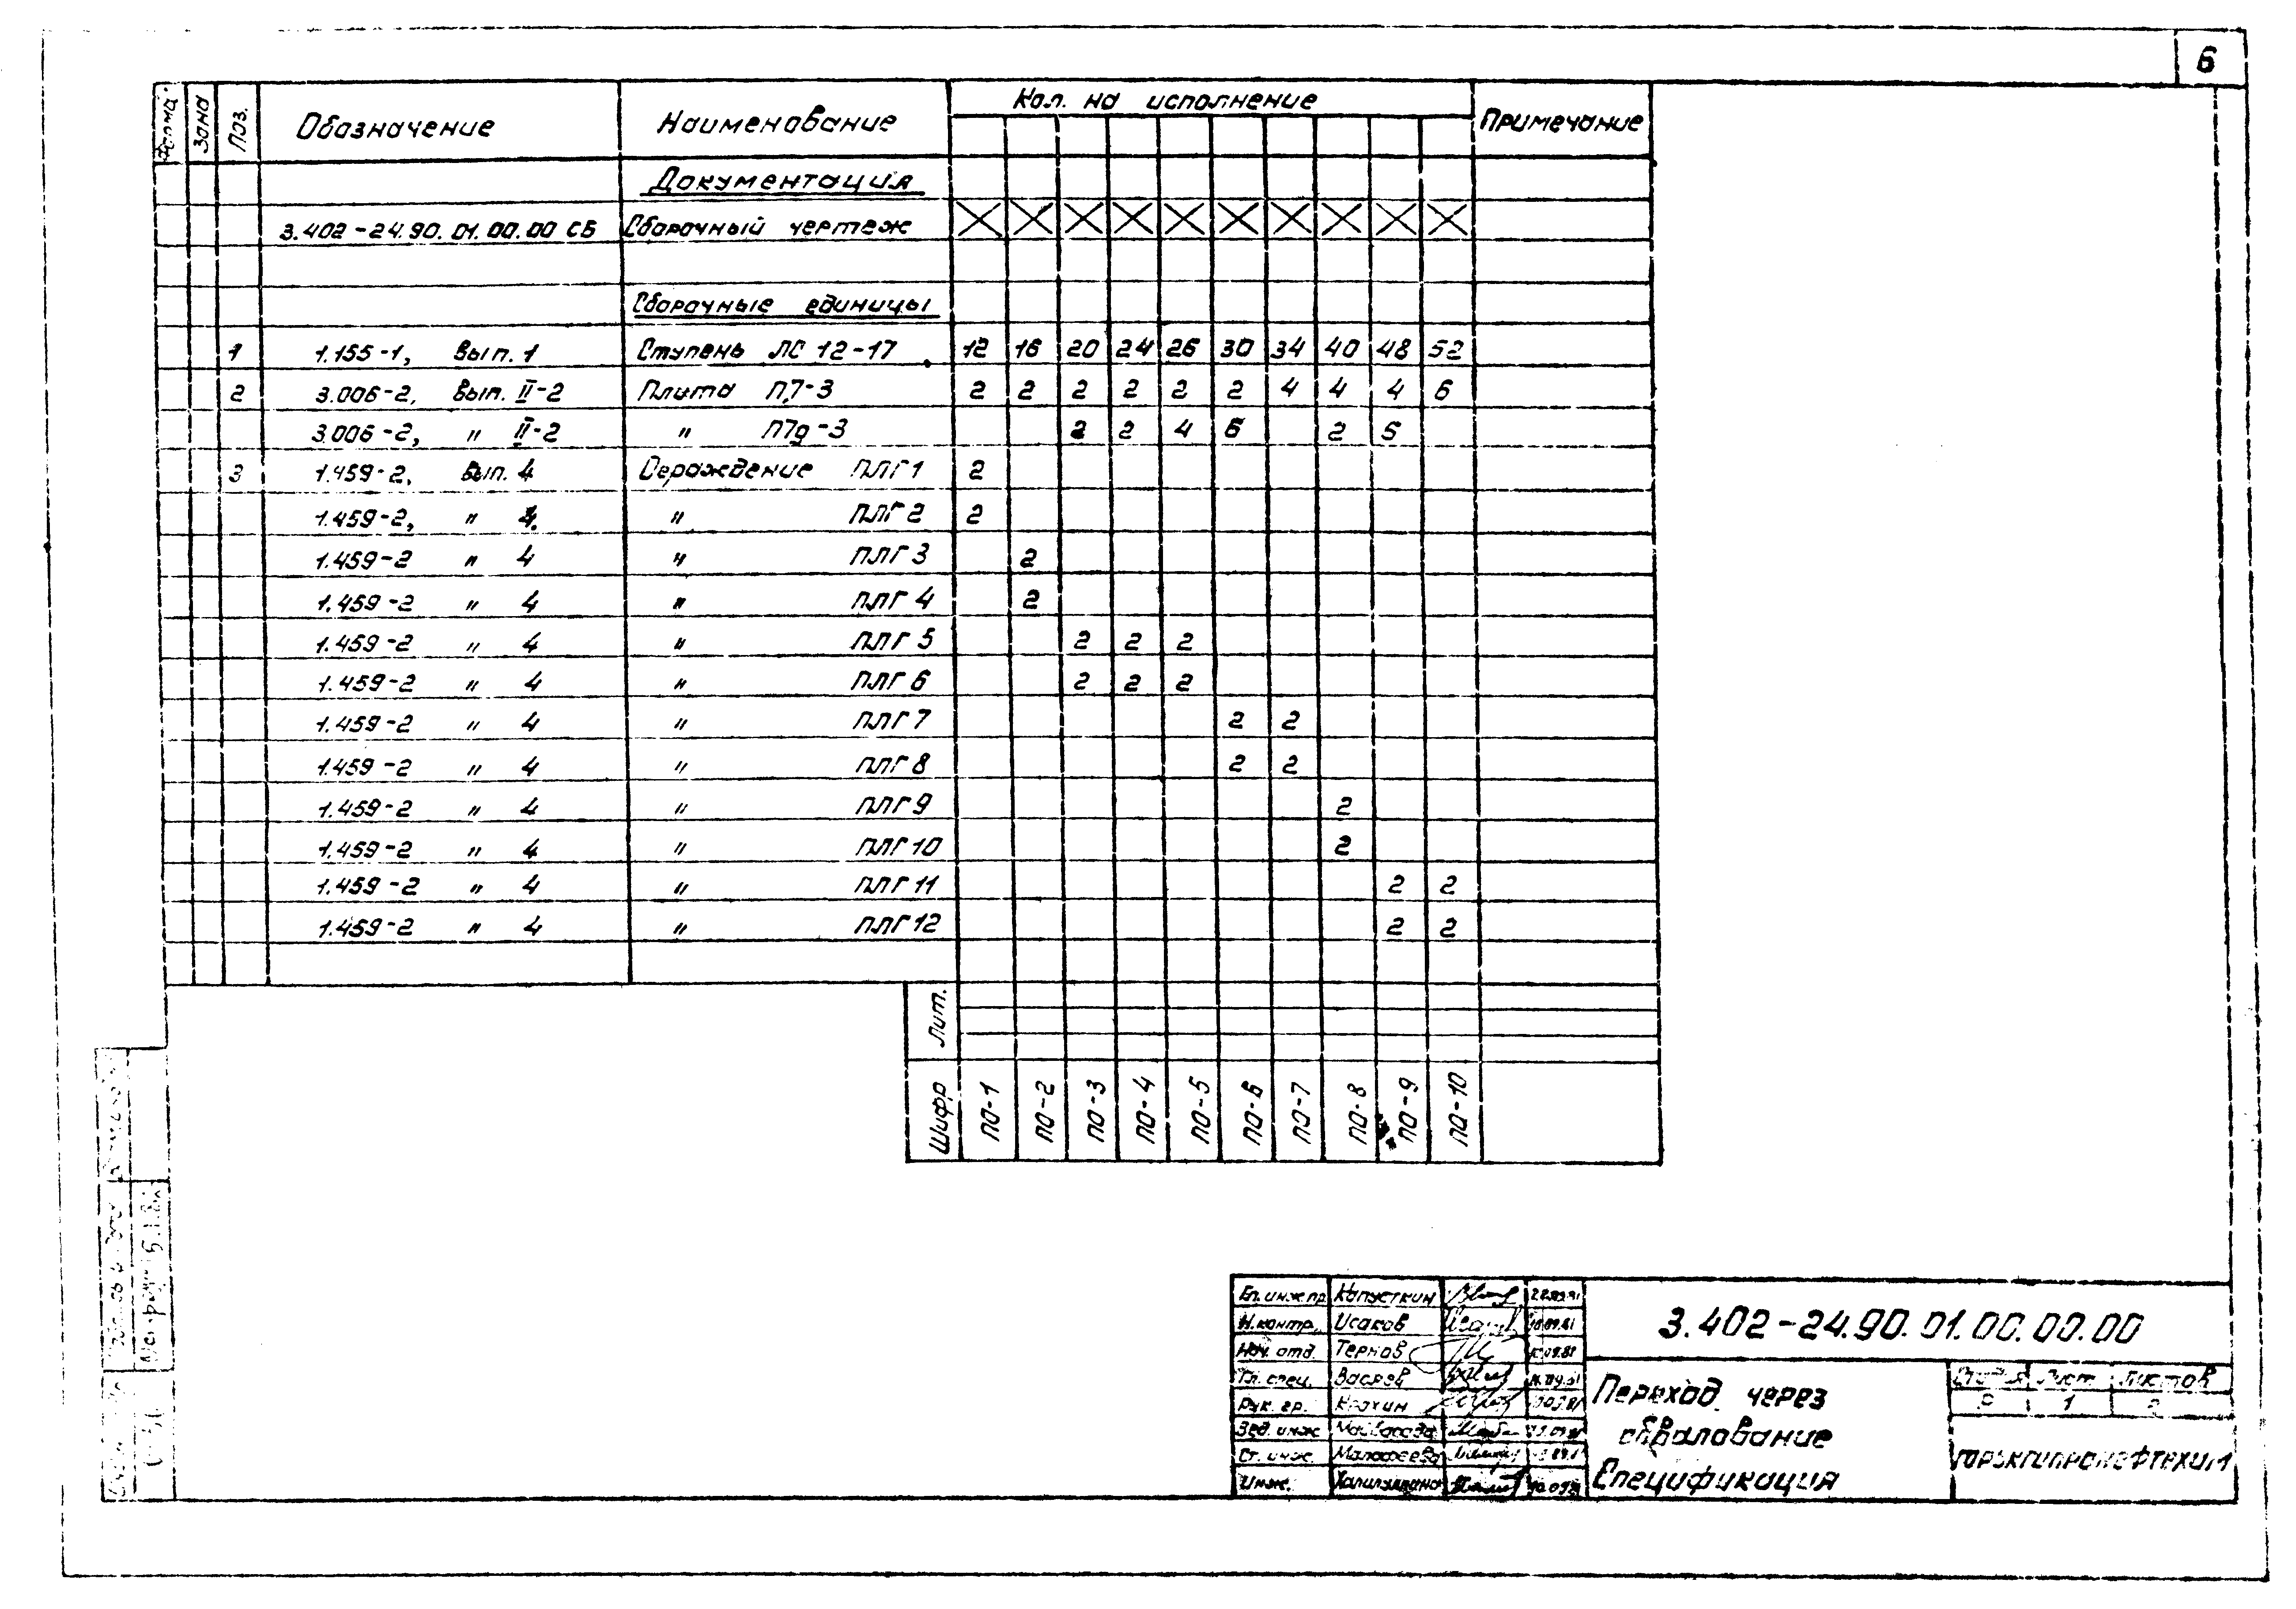 6
Зона Поз. Обозначение Наименование Кол. на исполнение Примечание
Документация
3.402-24.90.01.00.00 СБ Сборочный чертеж
Сборочные единицы
1 1.155-1, Вып. 1 Ступень ЛС 12-17 12 16 20 24 26 30 34 40 48 52
2 3.006-2, Вып. II-2 Плита П7-3 2 2 2 2 2 2 4 4 4 6
3.006-2, " II-2 " П7д-3 2 2 4 6 2 5
3 1.459-2, Вып. 4 Ограждение ПЛГ 1 2
1.459-2, " 4 " ПЛГ 2 2
1.459-2 " 4 " ПЛГ 3 2
1.459-2 " 4 " ПЛГ 4 2
1.459-2 " 4 " ПЛГ 5 2 2 2
1.459-2 " 4 " ПЛГ 6 2 2 2
1.459-2 " 4 " ПЛГ 7 2 2
1.459-2 " 4 " ПЛГ 8 2 2
1.459-2 " 4 " ПЛГ 9 2
1.459-2 " 4 " ПЛГ 10 2
1.459-2 " 4 " ПЛГ 11 2 2
1.459-2 " 4 " ПЛГ 12 2 2
Лит.
Шифр ПО-1 ПО-2 ПО-3 ПО-4 ПО-5 ПО-6 ПО-7 ПО-8 ПО-9 ПО-10
Гл. инж. пр. Капусткин
Н. контр. Исаков
Нач. отд. Тернов
Гл. спец.
Рук. гр. Крахин
Вед. инж.
Ст. инж. Малафеева
Инж.
3.402-24.90.01.00.00.00
Переход через
обвалование
Спецификация
Стадия Лист Листов
Р 1 2